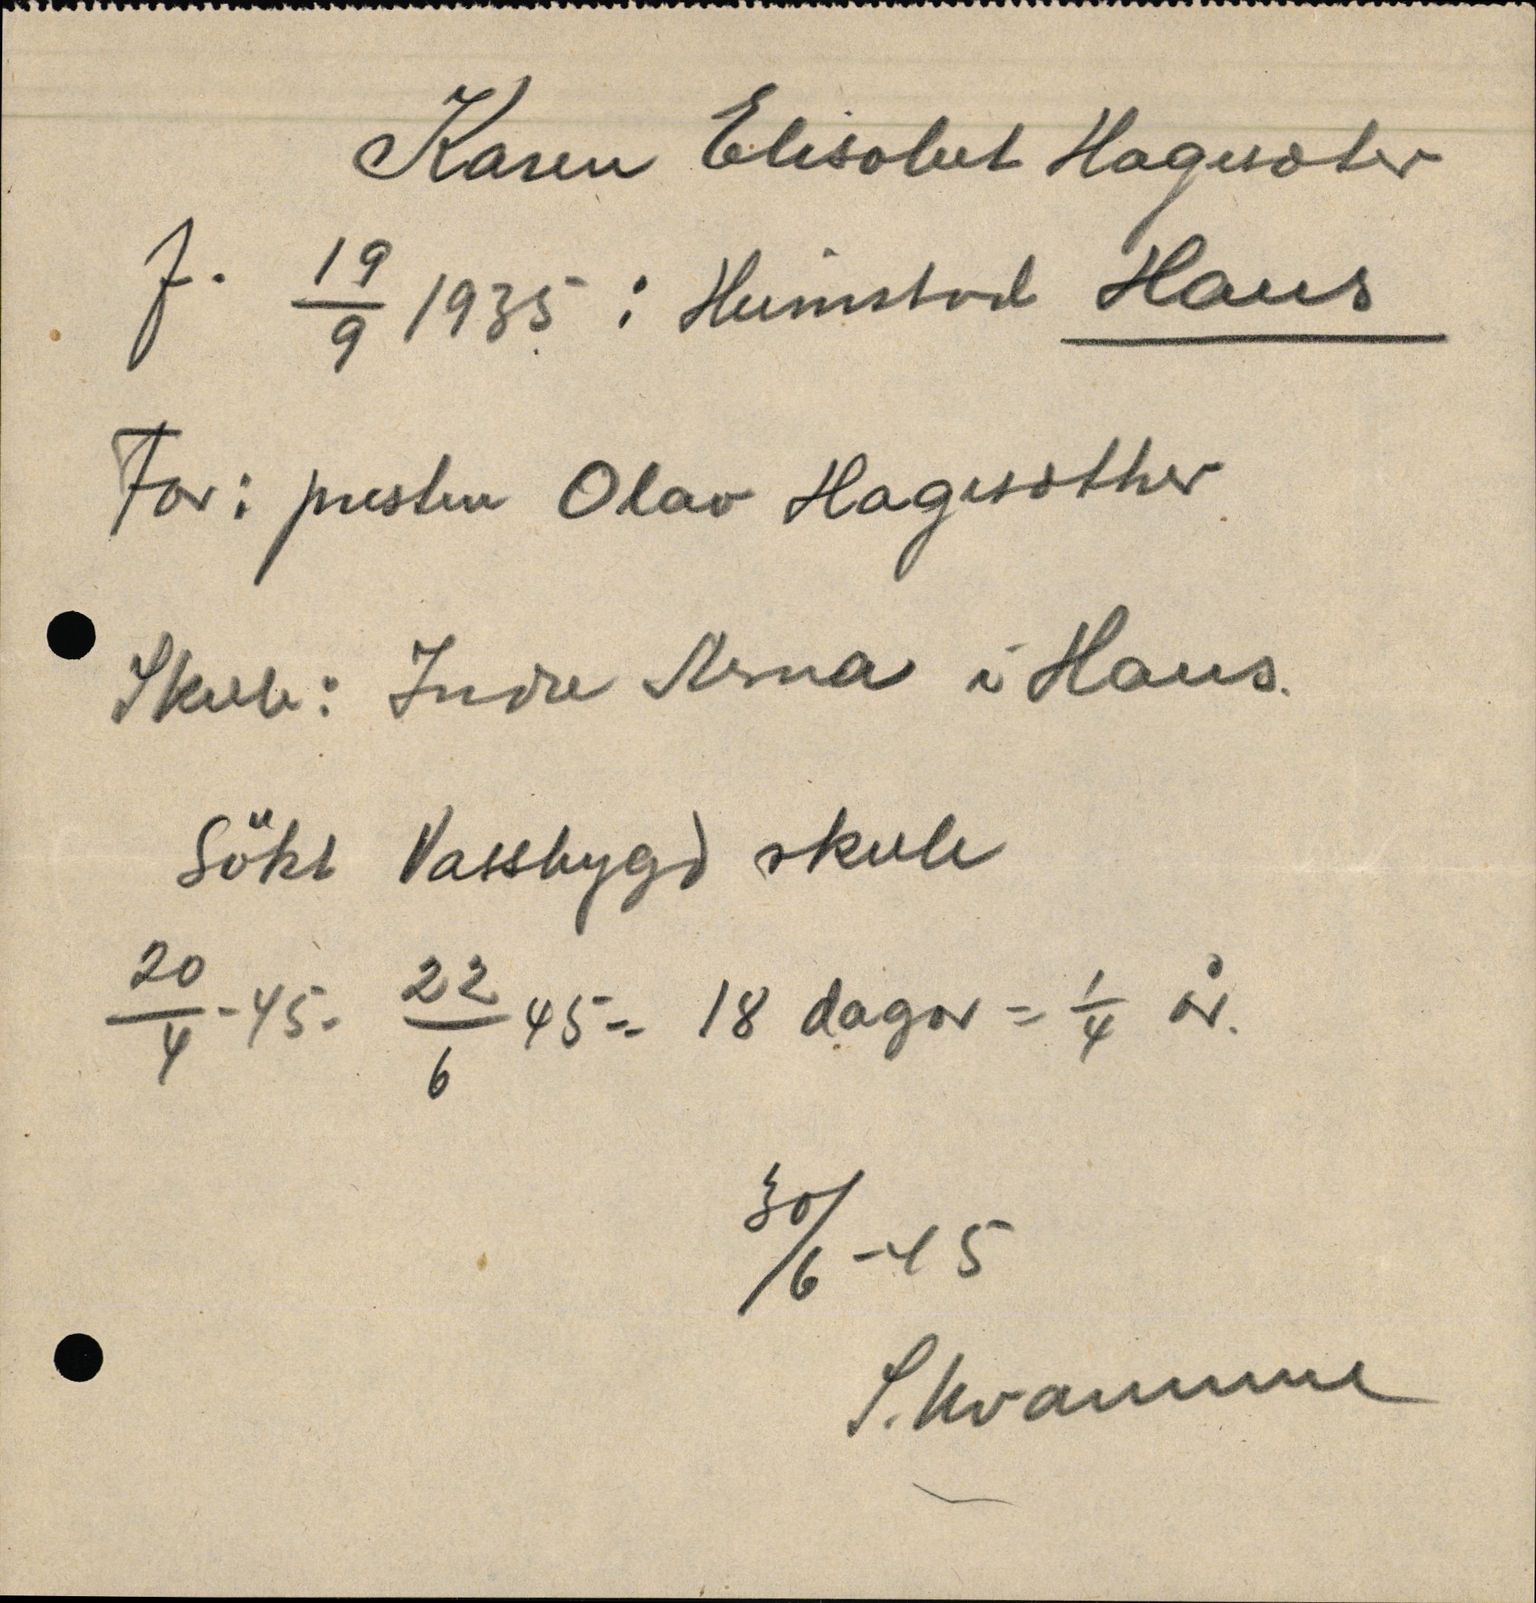 Karen Elisabet Hagesæter
f. 19/9 1935 : Heimstad Haus
Far: presten Olav Hagesæther
Skule: Indre Arna i Haus.
Sökt Vassbygd skule
20/4-45- 22/6 45= 18 dagar = 1/4 år.
30/6-45
S. Kvamme